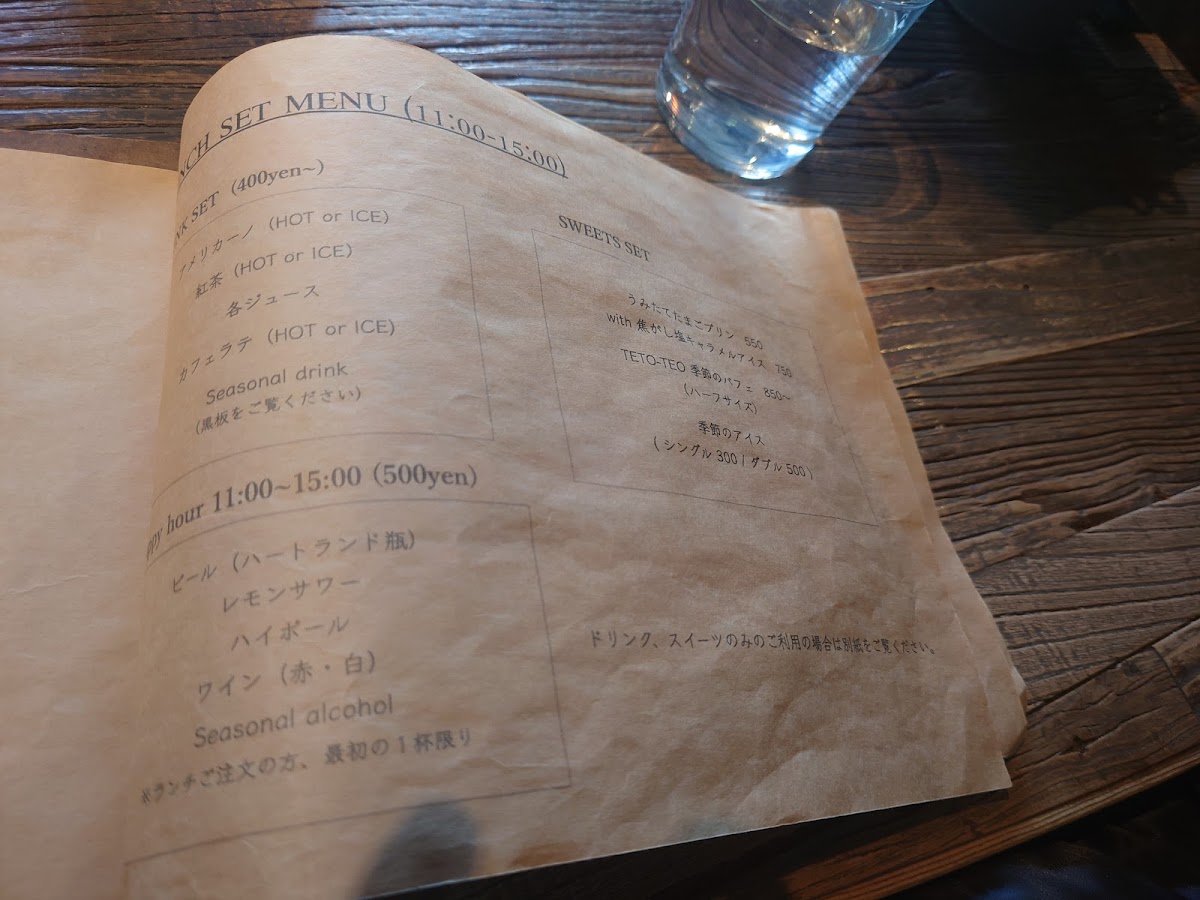 NCH SET MENU (11:00-15:00)
NK SET (400yen~)
アメリカーノ (HOT or ICE)
紅茶 (HOT or ICE)
各ジュース
カフェラテ (HOT or ICE)
Seasonal drink
(黒板をご覧ください)
ppy hour 11:00~15:00 (500yen)
ビール (ハートランド瓶)
レモンサワー
ハイボール
ワイン (赤・白)
Seasonal alcohol
※ランチご注文の方、最初の1杯限り
SWEETS SET
うみたてたまごプリン 550
with 焦がし塩キャラメルアイス 750
TETO-TEO 季節のパフェ 850~
(ハーフサイズ)
季節のアイス
( シングル 300 | ダブル 500 )
ドリンク、スイーツのみのご利用の場合は別紙をご覧ください。